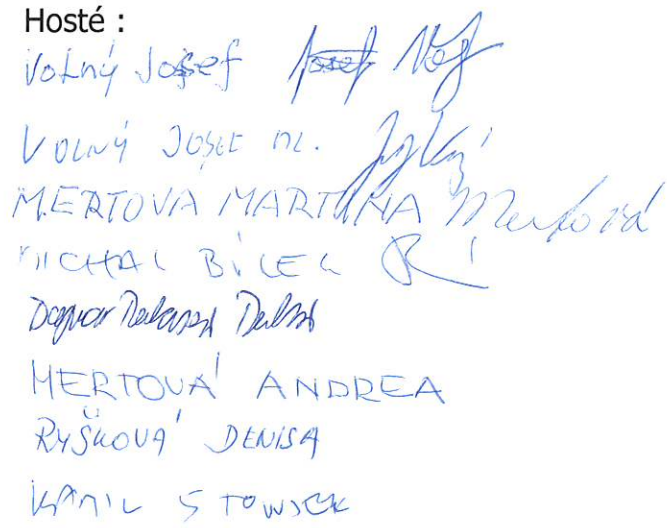 Hosté :
Volný Josef Josef
VOLNÝ JOSEF ML.
MERTOVA MARTINA Mertová
MICHAL BÍLEK
Dagmar
MERTOVÁ ANDREA
RYŠKOVÁ DENISA
KAMIL